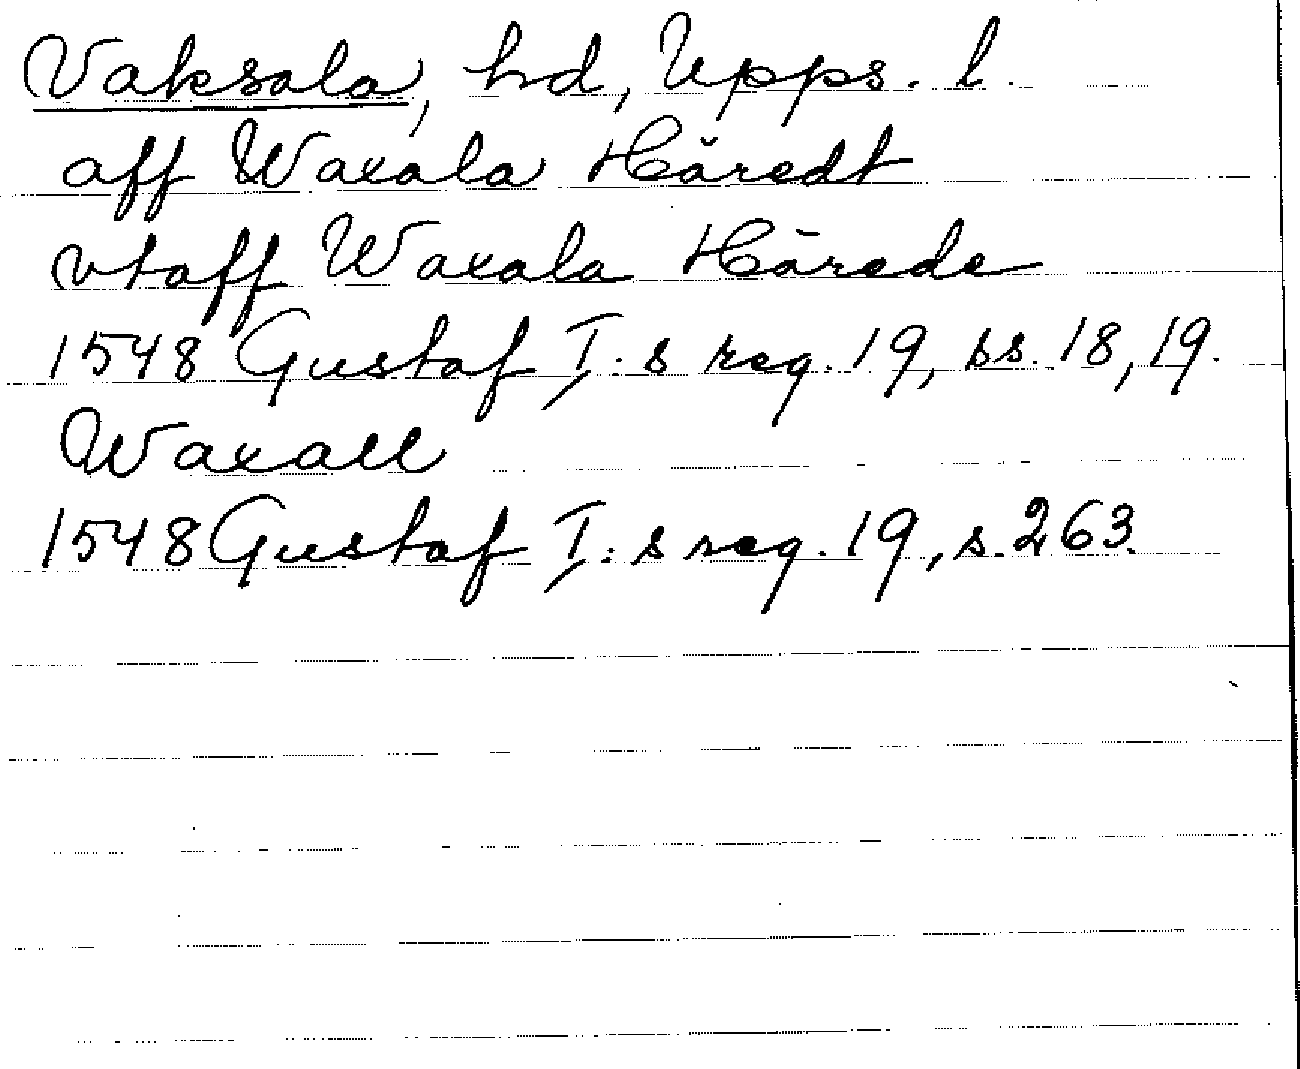 Vaksala, hd, Upps. l.
aff Waxala Häredt
vtaff Waxala Härede
1548 Gustaf I:s reg. 19, ss. 18, 19.
Waxall
1548 Gustaf I:s reg. 19, s. 263.